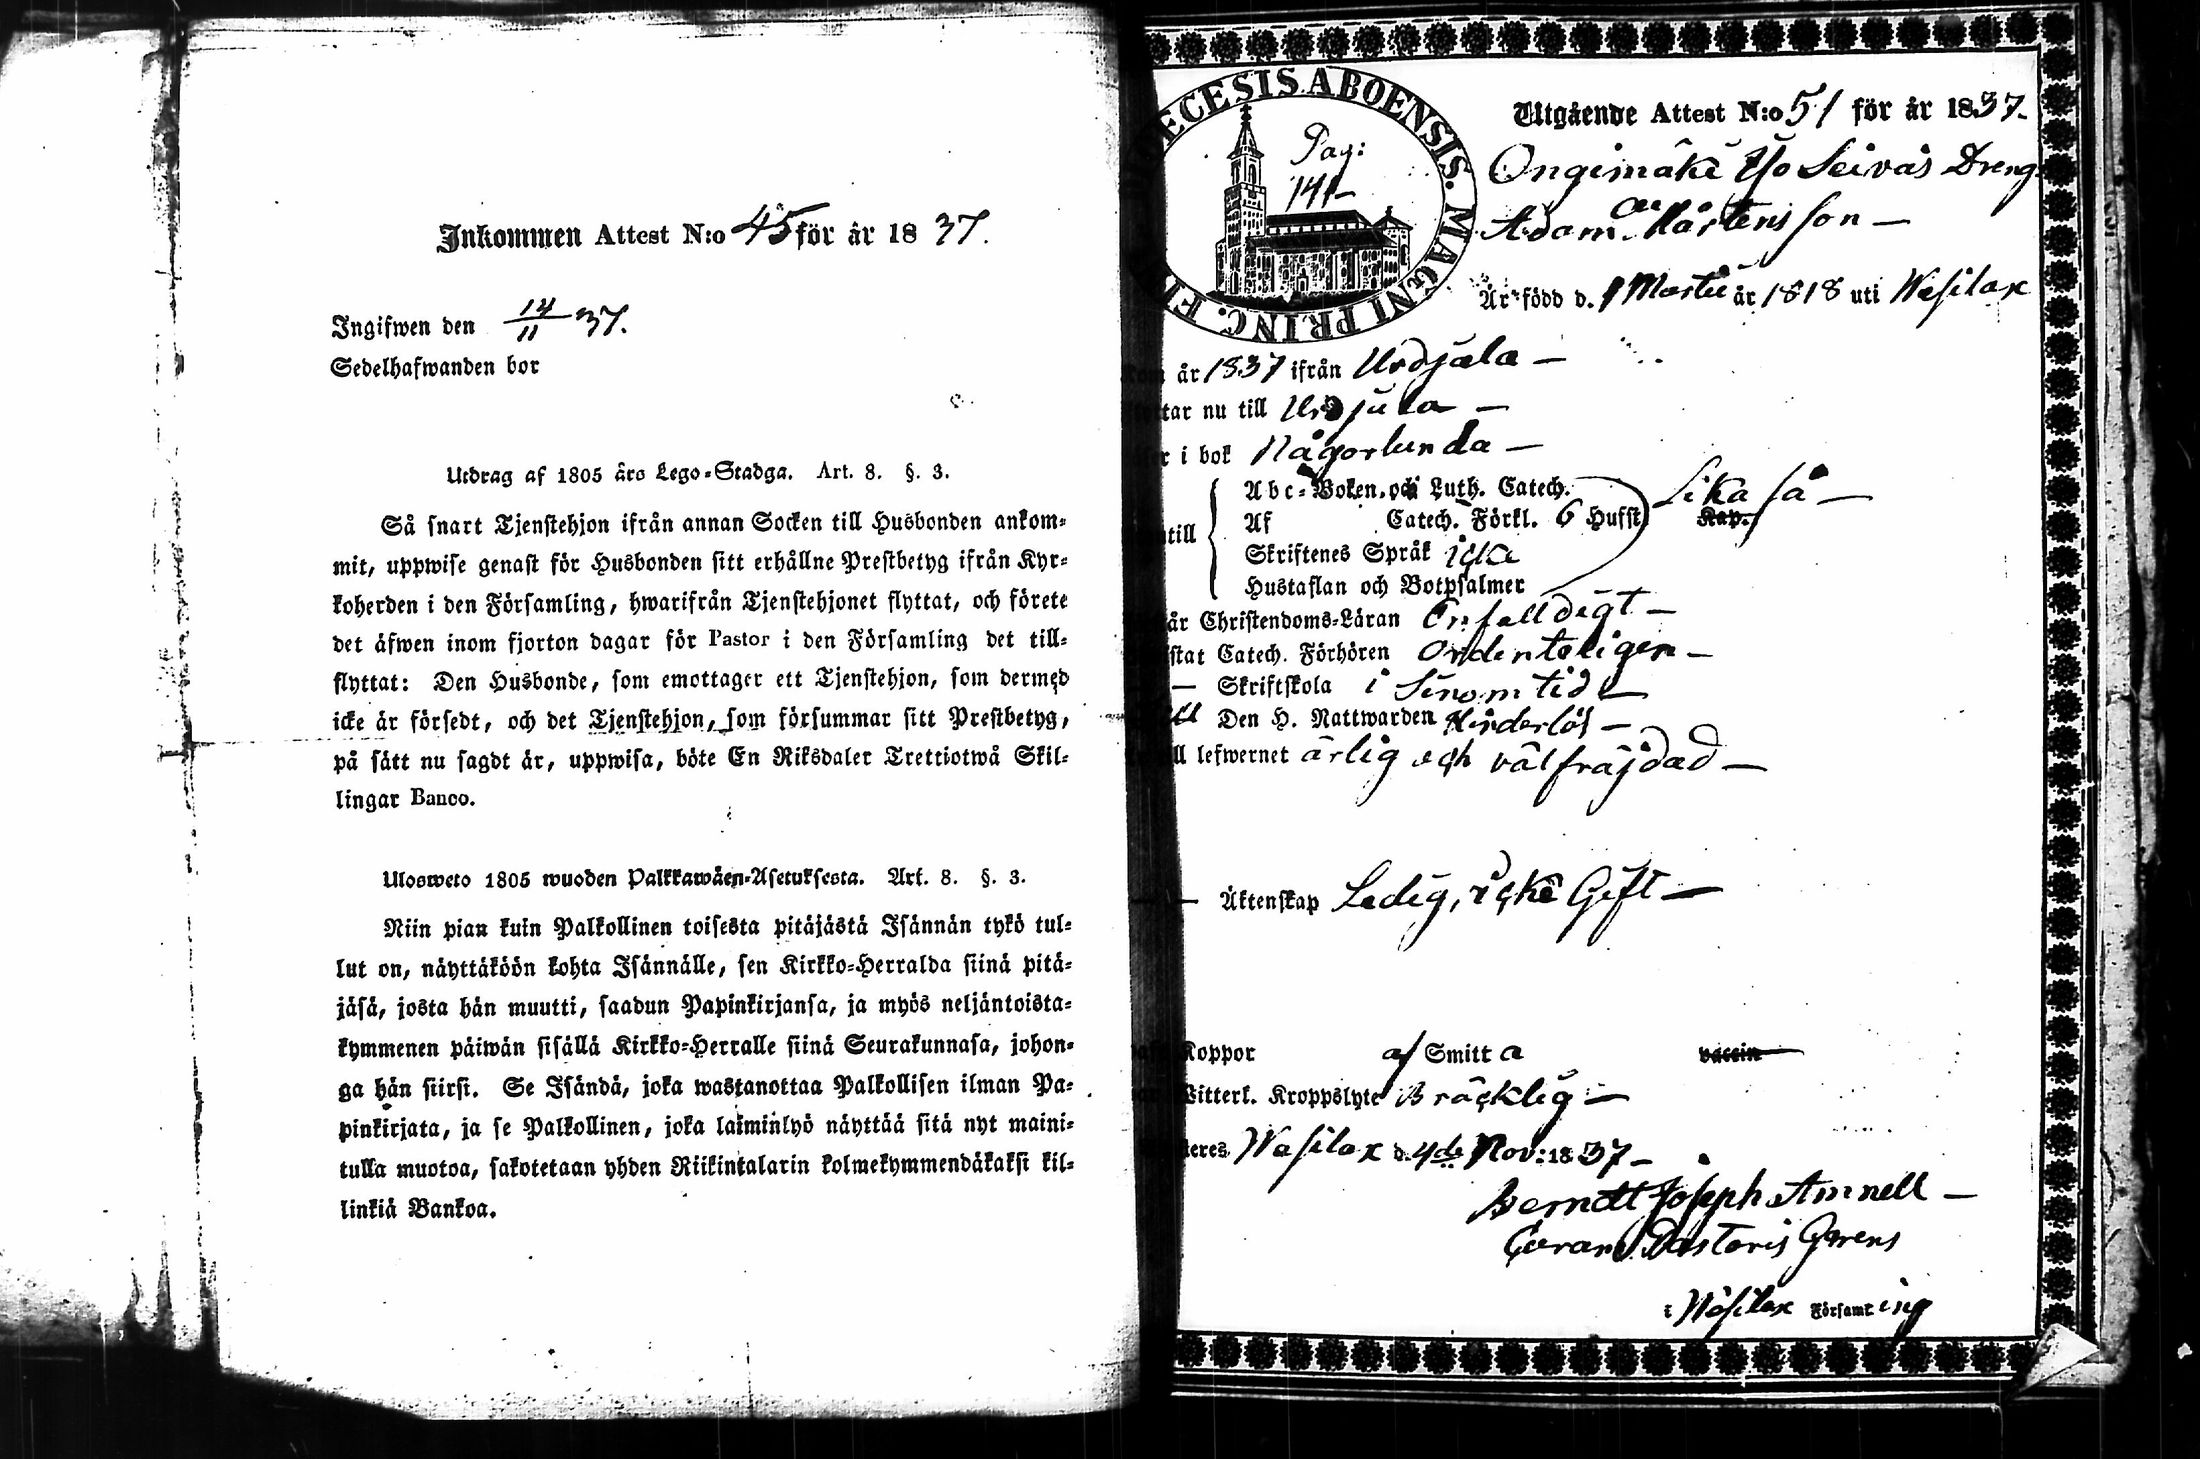 Inkommen Attest N:o 45 för år 1837.
Ingifwen den 14/11 37.
Sedelhafwanden bor
Utdrag af 1805 års Lego-Stadga. Art. 8. §. 3.
Så snart Tjenstehjon ifrån annan Socken till Husbonden ankom-
mit, uppwise genast för Husbonden sitt erhållne Prestbetyg ifrån Kyr-
koherden i den Församling, hwarifrån Tjenstehjonet flyttat, och förete
det äfwen inom fjorton dagar för Pastor i den Församling det till-
flyttat: Den Husbonde, som emottager ett Tjenstehjon, som dermed
icke är försedt, och det Tjenstehjon, som försummar sitt Prestbetyg,
på sätt nu sagdt är, uppwisa, böte En Riksdaler Trettiotwå Skil-
lingar Banco.
Ulosweto 1805 wuoden Palkkawäen-Asetuksesta. Art. 8. §. 3.
Niin pian kuin Palkollinen toisesta pitäjästä Isännän tykö tul-
lut on, näyttäköön kohta Isännälle, sen Kirkko-Herralda siinä pitä-
jäsä, josta hän muutti, saadun Papinkirjansa, ja myös neljäntoista-
kymmenen päiwän sisällä Kirkko-Herralle siinä Seurakunnasa, johon-
ga hän siirsi. Se Isändä, joka wastanottaa Palkollisen ilman Pa-
pinkirjata, ja se Palkollinen, joka laiminlyö näyttää sitä nyt maini-
tulla muotoa, sakotetaan yhden Riikintalarin kolmekymmendäkaksi kil-
linkiä Bankoa.
DIOECESIS ABOENSIS. MAGNI PRINC. FI
Pag:
141-
Utgående Attest N:o 51 för år 1837.
Ongimäki Seiväs Dreng
Adam Mårtensson —
Är född d. 1 Martii år 1818 uti Wesilax
kom år 1837 ifrån Urdjala —
flyttar nu till Urdjala —
läser i bok Någorlunda —
till
Abc-Boken, och Luth. Catech.
Af Catech. Förkl. 6 Hufst. Kap. Lika så —
Skriftenes Språk icke
Hustaflan och Botpsalmer
Christendoms-Läran Enfalldigt —
Catech. Förhören Ordenteligen —
— Skriftskola i Sinom tid —
Den H. Nattwarden Hinderlös —
till lefwernet ärlig och välfräjdad —
— Äktenskap Ledig, icke Gift —
Koppor af Smitta vaccin
Witterl. Kroppslyte Bräcklig —
Wesilax d. 4de Nov: 1837 —
Berndt Joseph Amnell —
Curam Pastoris Gerens
i Wesilax Församling